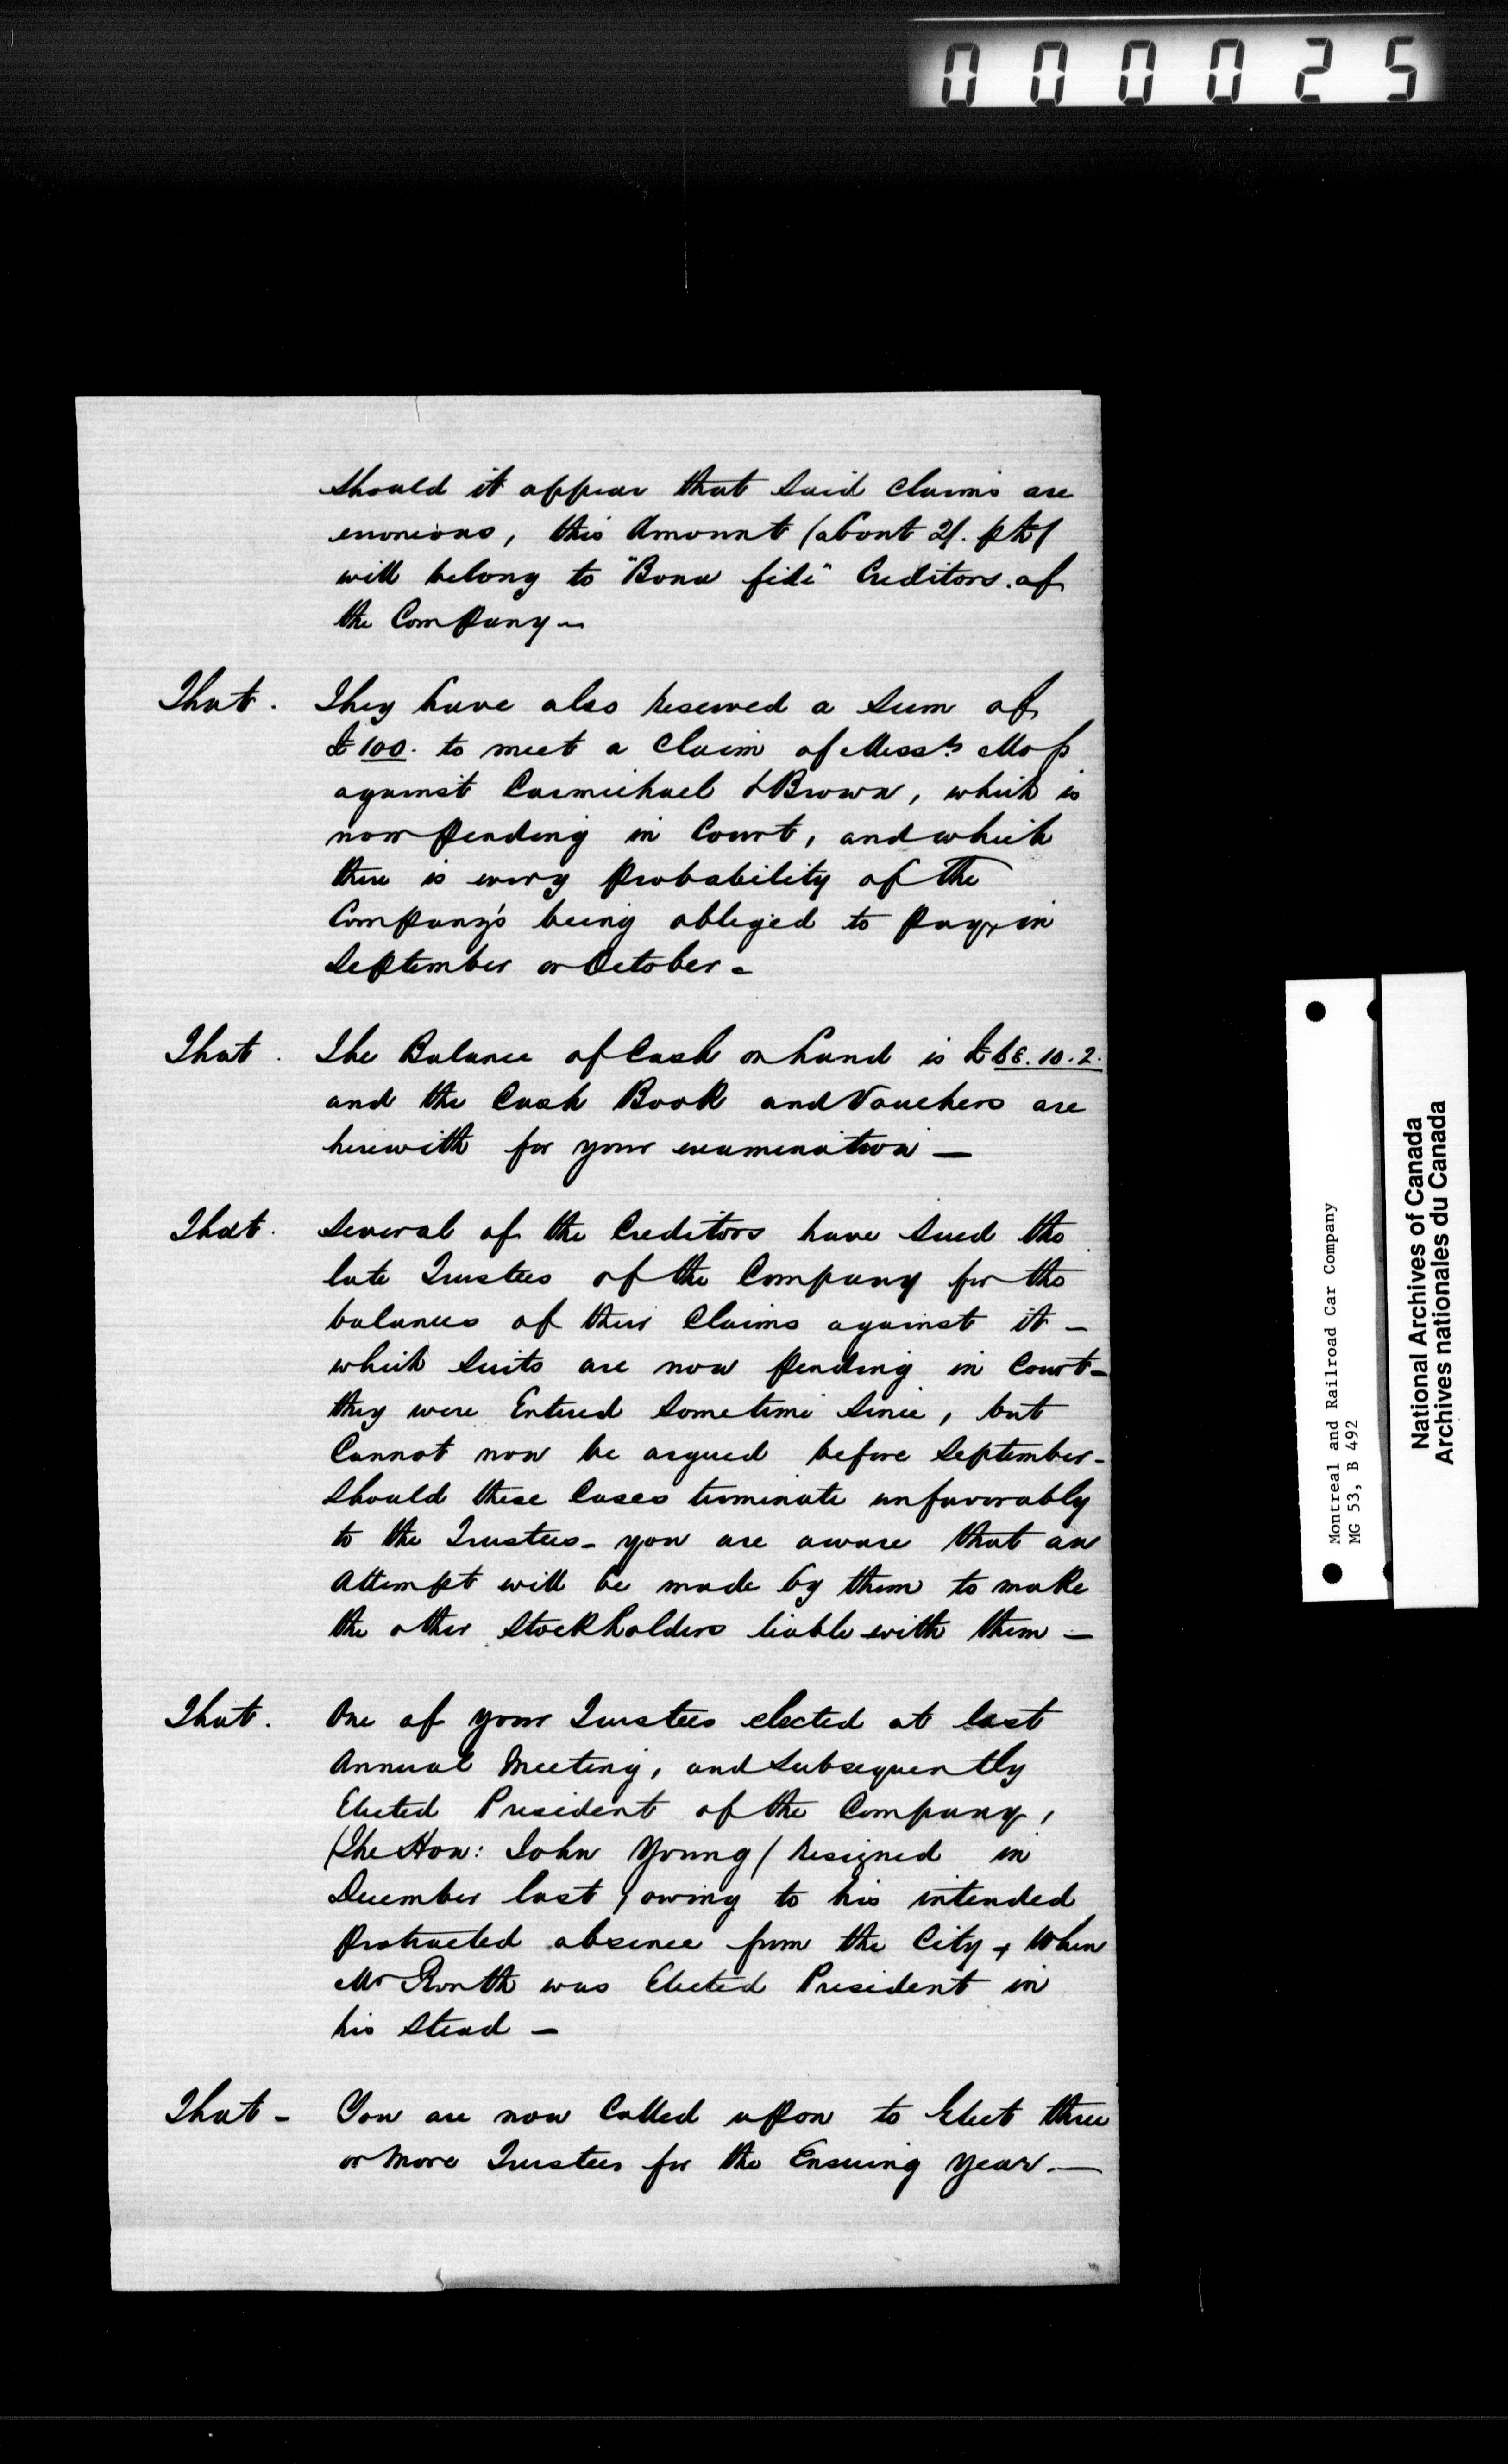 000025
should it appear that said claims are
erroneous, this Amount (about 2/. p £)
will belong to "Bona fide" Creditors of
the Company—
That. They have also reserved a sum of
£100. to meet a Claim of Messrs Moss
against Carmichael & Brown, which is
now pending in Court, and which
there is every probability of the
Company's being obliged to pay, in
September or October.
That. The Balance of Cash on hand is 10.2.
and the Cash Book and Vouchers are
herewith for your examination—
That. Several of the Creditors have sued the
late Trustees of the Company for the
balances of their Claims against it—
which suits are now pending in Court—
they were Entered sometime since, but
Cannot now be argued before September—
Should these Cases terminate unfavorably
to the Trustees— you are aware that an
Attempt will be made by them to make
the other Stockholders liable with them—
That. One of your Trustees elected at last
Annual Meeting, and subsequently
Elected President of the Company,
(The Hon: John Young) resigned in
December last, owing to his intended
protracted absence from the City, When
Mr Routh was Elected President in
his stead—
That— You are now Called upon to Elect three
or more Trustees for the Ensuing Year.—
Montreal and Railroad Car Company
MG 53, B 492
National Archives of Canada
Archives nationales du Canada